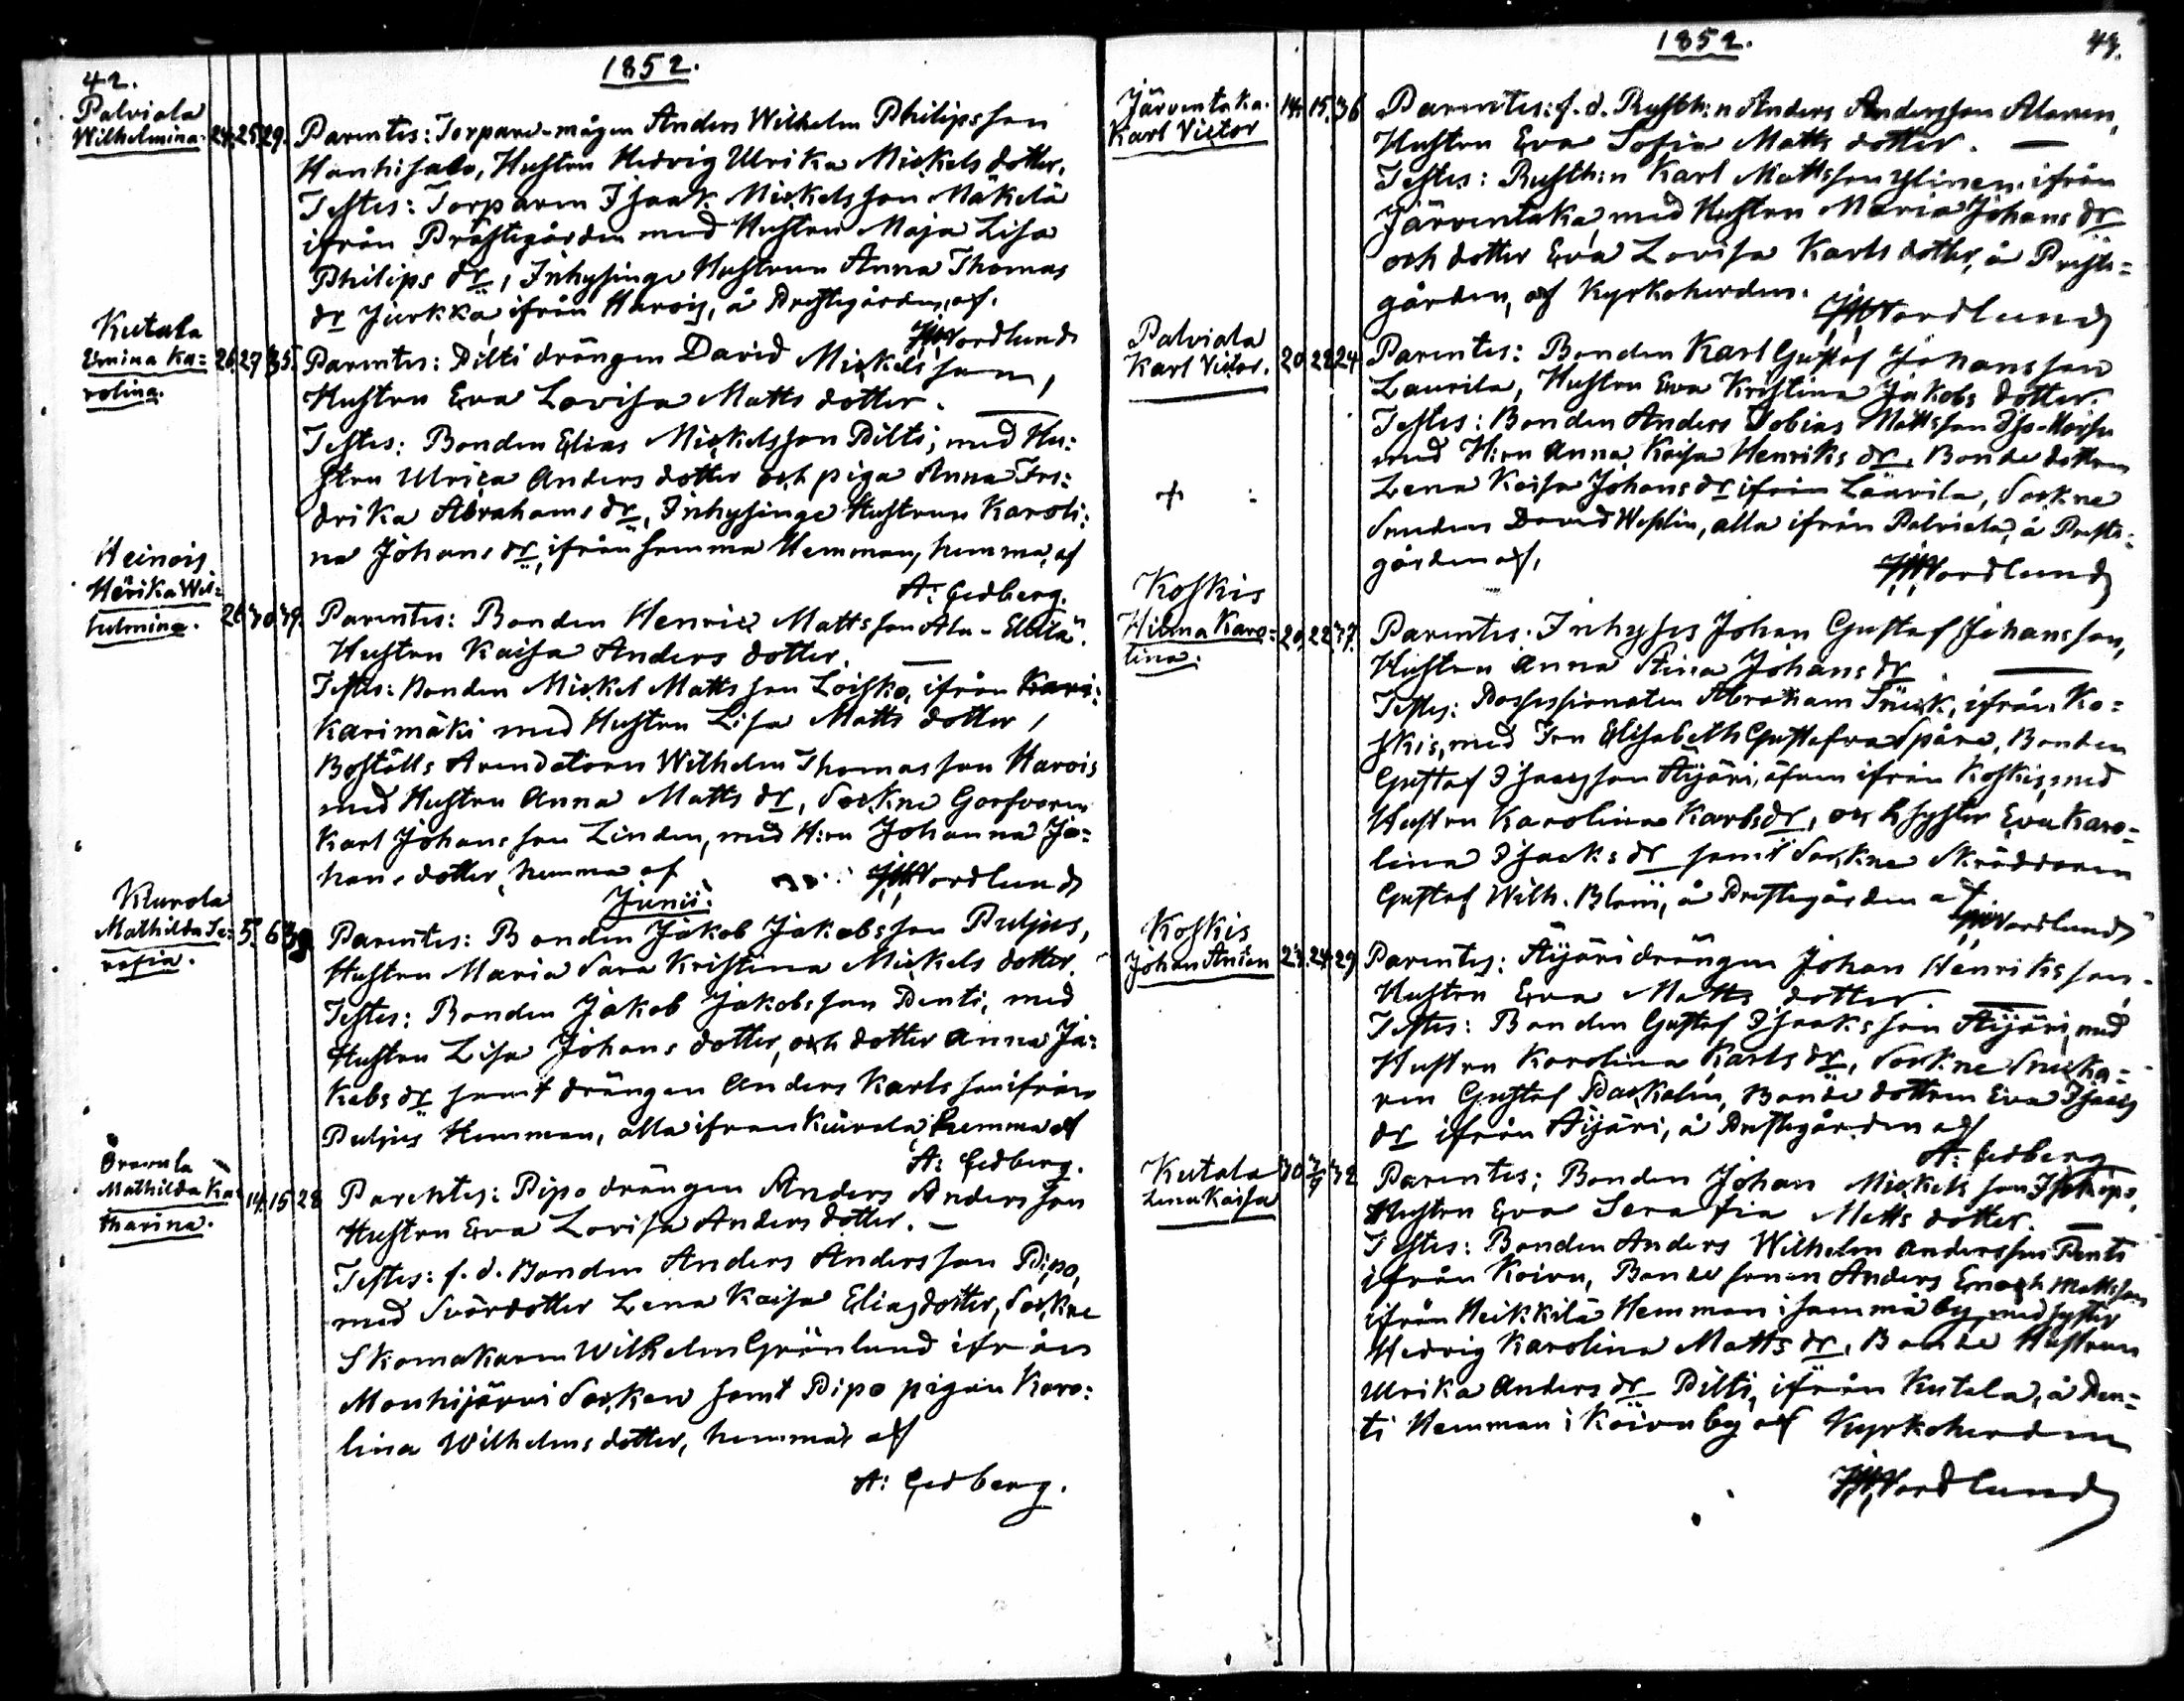 42.
1852.
Palviala
Wilhelmina. 24. 25. 29. Parentes: Torpare-mågen Anders Wilhelm Philipsson
Hanhisalo, Hustru Hedvig Ulrika Mickels dotter.
Testes: Torparen Isaak Mickelsson Mäkelä
ifrån Prästegården med Hustru Maja Lisa
Philips dr, Inhysinge Hustrun Anna Thomas
dr Jurkka, ifrån Harois, å Prestegården, af.
Nordlund
Kutala
Emina Ka= 26. 27. 35. Parentes: Pilti drängen David Mickelsson,
rolina. Hustru Eva Lovisa Matts dotter.
Testes: Bonden Elias Mickelsson Pilti, med Hu:
stru Ulrica Anders dotter och piga Anna Fre:
drika Abrahams dr, Inhysinge Hustrun Karoli:
na Johans dr, ifrån samma Hemman, hemma, af
A: Gedberg.
Heinois.
Herika Wil=
helmina. 26 30 39. Parentes: Bonden Henric Mattsson Ala-Ellilä.
Hustru Kaisa Anders dotter.
Testes: Bonden Mickel Mattsson Loisko, ifrån Kari:
Karimäki med Hustru Lisa Matts dotter,
Boställs Arendatorn Wilhelm Thomasson Harois
med Hustru Anna Matts dr, Sockne Garfvaren
Karl Johansson Linden, med H:ru Johanna Jo=
hans dotter, hemma af Nordlund
Junii.
Kiurola
Mathilda Se= 5. 6. 39 Parentes: Bonden Jakob Jakobsson Puljus,
rafia. Hustru Maria Sara Kristina Mickels dotter.
Testes: Bonden Jakob Jakobsson Penti, med
Hustru Lisa Johans dotter, och dotter Anna Ja:
kobs dr samt drängen Anders Karlsson ifrån
Puljus Hemman, alla ifrån Kiurola, hemma af
A: Gedberg.
Mathilda Ka= 14. 15 28 Parentes: Pipo drängen Anders Andersson
tharina. Hustru Eva Lovisa Anders dotter.
Testes: f. d. Bonden Anders Andersson Pipo,
med Svärdotter Lena Kaisa Eliasdotter, Sockne
Skomakaren Wilhelm Grönlund ifrån
Mouhijärvi Socken samt Pipo pigan Karo:
lina Wilhelms dotter, hemma af
A: Gedberg.
1852.
43.
Järventaka. 14. 15. 36 Parentes: f. d. Rusth:n Anders Andersson Alanen,
Karl Victor Hustru Eva Sofia Matts dotter.
Testes: Rusth:n Karl Mattsson Ylinen ifrån
Järventaka, med Hustru Maria Johans dr
och dotter Eva Lovisa Karls dotter, å Preste=
gården, af Kyrkoherden.
Nordlund
Palviala
Karl Victor. 20. 22 24 Parentes: Bonden Karl Gustaf Johansson
Laurila, Hustru Eva Kristina Jakobs dotter.
Testes: Bonden Anders Tobias Mattsson
med H:ru Anna Kaisa Henriks dr, Bonde dottren
Lena Kaisa Johans dr ifrån Laurila, Sockne
Smeden David Weslin, alla ifrån Palviala, å Preste:
gården af,
Nordlund
Koskis
Hilma Karo= 20. 22. 37. Parentes: Inhyses Johan Gustaf Johansson,
lina. Hustru Anna Stina Johans dr
Testes: Possessionaten Abraham, ifrån Ko=
skis, med Fru Elisabeth Gustafva Spåre, Bonden
Gustaf Isaacsson Äijäri, äfven ifrån Koskis, med
Hustru Karolina Karls dr, och syster Eva Karo=
lina Isaaks dr samt Sockne Skräddaren
Gustaf Wilh. Blom, å Prestegården af
Nordlund
Koskis
Johan Anian 23. 24 29 Parentes: Äijäri drängen Johan Henriksson,
Hustru Eva Matts dotter.
Testes: Bonden Gustaf Isaaksson Äijäri, med
Hustru Karolina Karls dr, Sockne Snicka=
ren Gustaf Packalin, Bonde dottren Eva Isaacs
dr ifrån Äijäri, å Prestegården af
A: Gedberg
Kutala 30 32 Parentes: Bonden Johan Mickelsson
Lena Kaisa Hustru Eva Serafia Matts dotter.
Testes: Bonden Anders Wilhelm Andersson Penti
ifrån Koivu, Bonde sonen Anders Enoch Mattsson
ifrån Heikkilä Hemman i samma by, med syster
Hedvig Karolina Matts dr, Bonde Hustrun
Ulrika Anders dr Pilti, ifrån Kutala, å Pen=
ti Hemman i Koivu by af Kyrkoherden
Nordlund